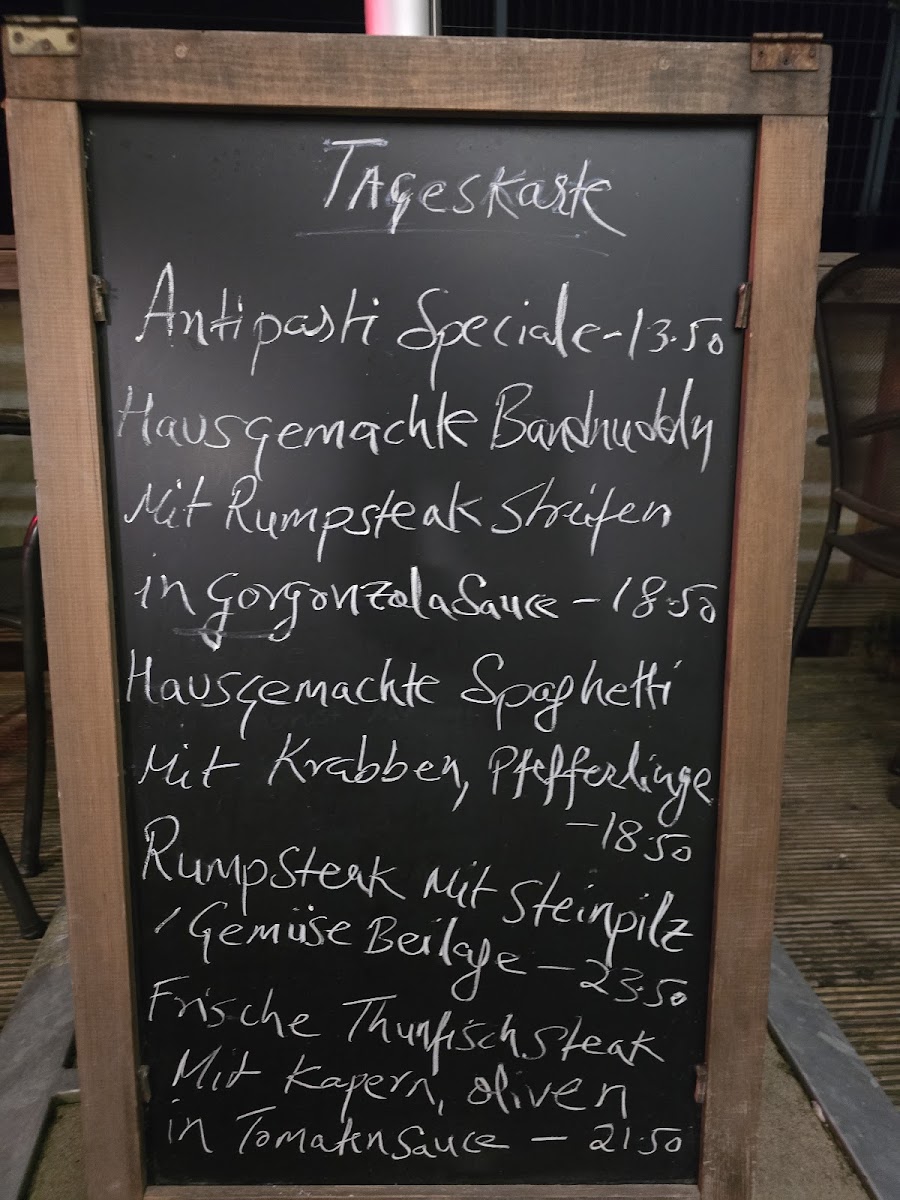 Tageskarte
Antipasti Speciale - 13.50
Hausgemachte Bandnudeln
Mit Rumpsteak Streifen
in Gorgonzola Sauce - 18.50
Hausgemachte Spaghetti
Mit Krabben, Pfefferlinge
- 18.50
Rumpsteak Mit Steinpilz
/ Gemüse Beilage - 23.50
Frische Thunfisch Steak
Mit Kapern, oliven
in Tomatensauce - 21.50